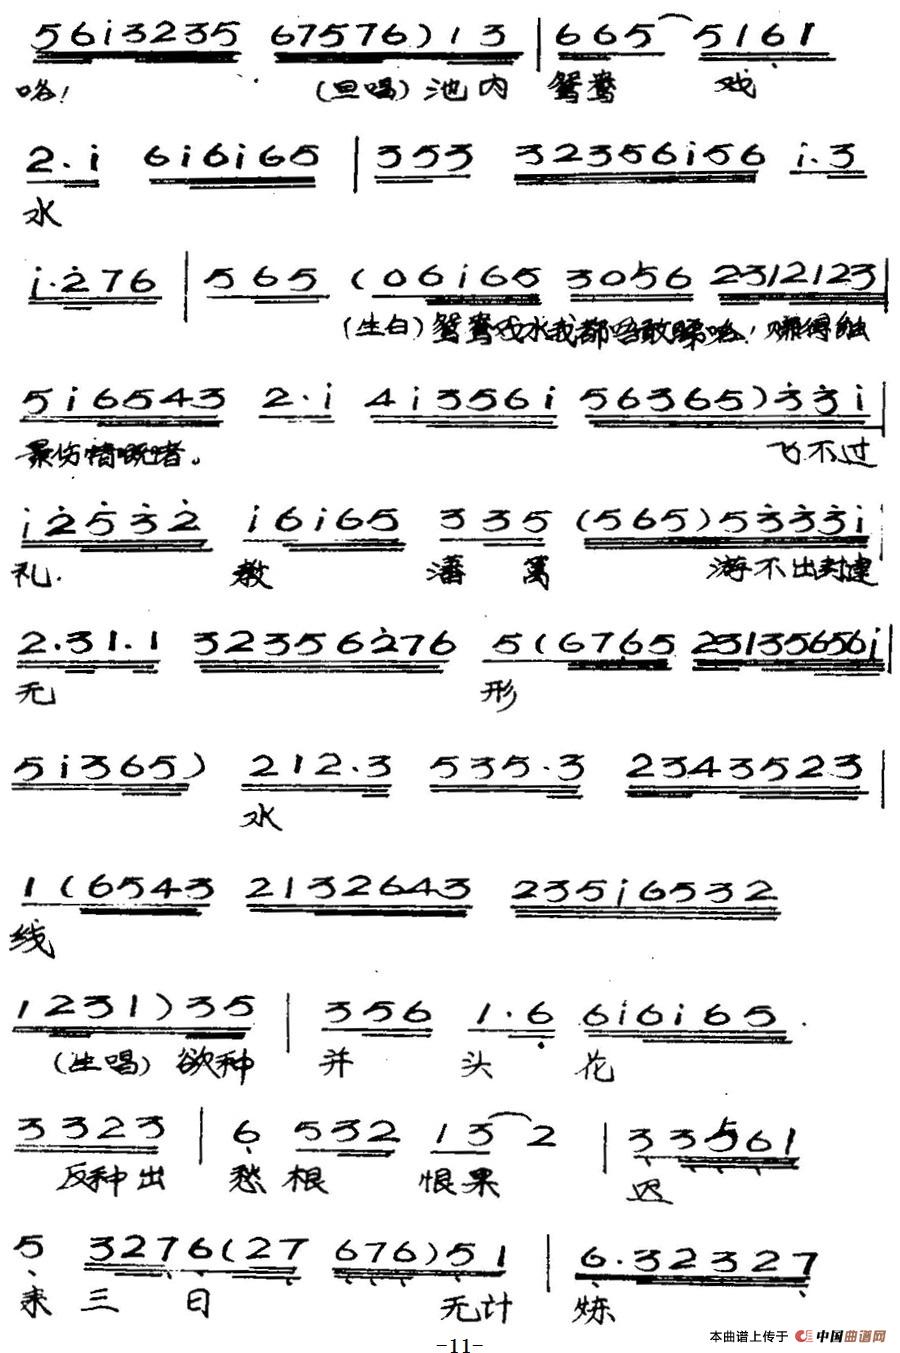 5 6 i 3 2 3 5 6 7 5 7 6 ) 1 3 | 6 6 5 5 1 6 1
咯！ （旦唱）池内 鸳鸯 戏
2 · i 6 i 6 i 6 5 | 3 5 3 3 2 3 5 6 i 5 6 i · 3
水
i · 2 7 6 | 5 6 5 ( 0 6 i 6 5 3 0 5 6 2 3 1 2 1 2 3 |
（生白）鸳鸯戏水我都唔敢睇咯！
5 i 6 5 4 3 2 · i 4 i 3 5 6 i 5 6 3 6 5 ) 3 3 i |
景伤情嘅啫。 飞不过
i 2 5 3 2 i 6 i 6 5 3 3 5 ( 5 6 5 ) 5 3 3 3 i |
礼 教 藩 篱 游不出封建
2 · 3 1 · 1 3 2 3 5 6 2 7 6 5 ( 6 7 6 5 2 3 1 3 5 6 5 6 i |
无 形
5 i 3 6 5 ) 2 1 2 · 3 5 3 5 · 3 2 3 4 3 5 2 3 |
水
1 ( 6 5 4 3 2 1 3 2 6 4 3 2 3 5 i 6 5 3 2
线
1 2 3 1 ) 3 5 | 3 5 6 1 · 6 6 i 6 i 6 5
（生唱）欲种 并 头 花
3 3 2 3 | 6 5 3 2 1 3 2 | 3 3 5 6 1
反种出 愁 根 恨 果 迟
5 3 2 7 6 ( 2 7 6 7 6 ) 5 1 | 6 · 3 2 3 2 7
来 三 日 无计 炼
-11-
本曲谱上传于 中国曲谱网